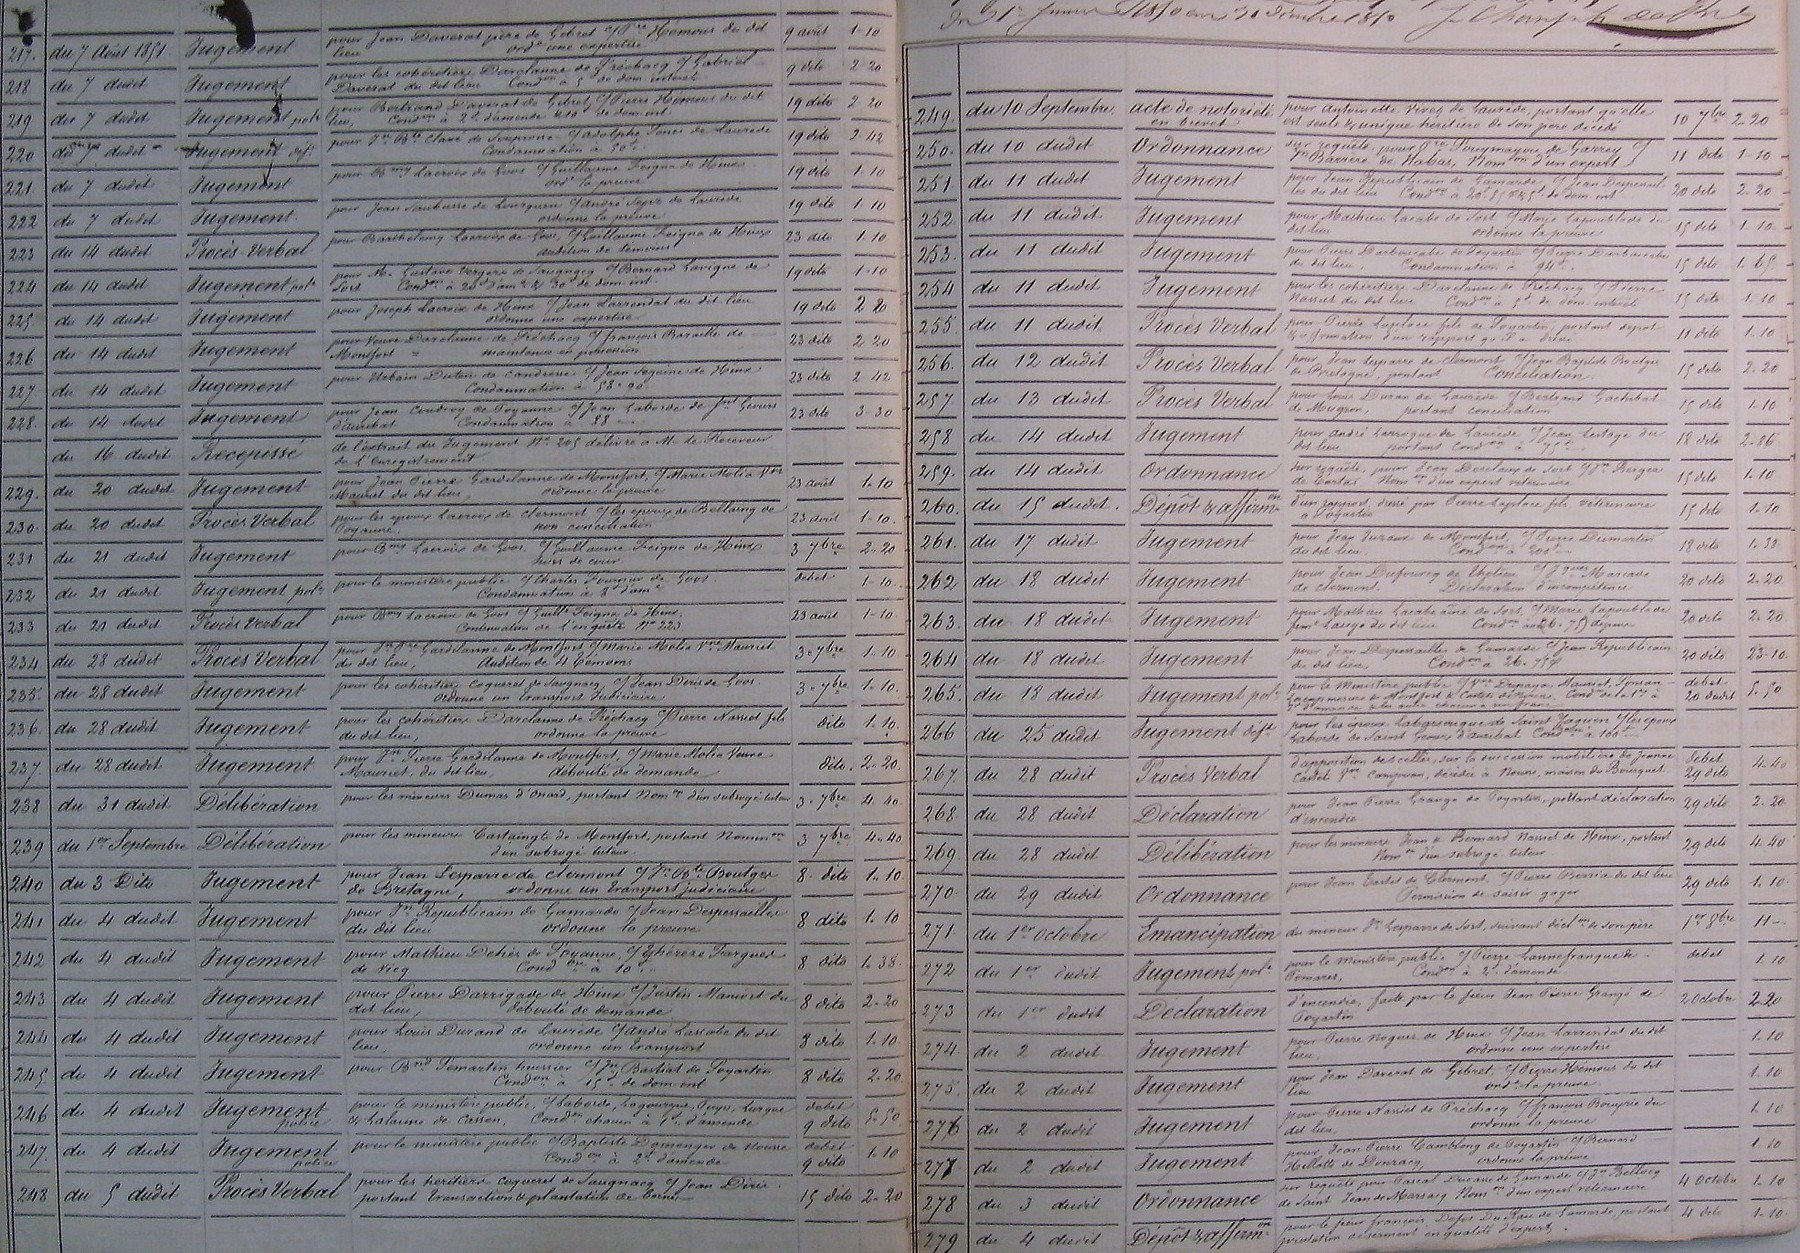 217. du 7 Août 1851. Jugement pour Jean Daverat père de Gibret c/ Pre Hémous du dit 9 août 1-10
lieu ordne une expertise
218 du 7 dudit Jugement pour les cohéritiers Darclanne de Préchacq c/ Gabriel 9 dito 2-20
Daverat du dit lieu Condon à 5f de dom. intérêt
219 du 7 dudit Jugement pole pour Bertrand Daverat de Gibret c/ Pierre Hémous du dit 19 dito 2-20
lieu, Condon à 2f d'amende & 10f de dom. int.
220 du 7 dudit Jugement déf. pour Jn Bte Clavé de Souprosse c/ adolphe de Laurède 19 dito 2-42
Condamnation à 50f
221 du 7 dudit Jugement pour Bmy Lacroix de Goos c/ Guillaume Feigna de Hinx 19 dito 1-10
ordne la preuve
222 du 7 dudit Jugement. pour Jean Saubusse de Louaguen c/ andré de Laurède 19 dito 1-10
ordonne la preuve
223 du 14 dudit Procès-Verbal pour Barthélemy Lacroix de Goos, c/ Guillaume Feigna de Hinx 23 dito 1-10
audition de témoins
224 du 14 dudit Jugement pole pour M. Gustave Vergers de Saugnacq c/ Bernard Lavigne de 19 dito 1-10
Sort Condon à 20f d'am. & 30f de dom. int.
225. du 14 dudit Jugement pour Joseph Lacroix de Hinx c/ Jean Larrendat du dit lieu 19 dito 2-20
ordonne une expertise
226 du 14 dudit Jugement pour Veuve Darclanne de Préchacq c/ françois Baraille de 23 dito 2 20
Montfort maintenue en possession
227 du 14 dudit Jugement pour Urbain Dutin de Candresse c/ Jean Segoine de Hinx 23 dito 2-42
Condamnation à 58-90
228. du 14 dudit Jugement pour Jean Coudroy de Poyanne c/ Jean Laborde de St Geours 23 dito 3-30
d'auribat Condamnation à 88
du 16 dudit Récépissé de l'extrait du Jugement No 205 délivré à M. le Receveur
de l'Enregistrement
229. du 20 dudit Jugement pour Jean Pierre Gardilanne de Montfort, c/ Marie Molia Vve 23 août 1-10
Mauriet du dit lieu, ordonne la preuve
230. du 20 dudit Procès Verbal pour les époux Lacroix de Clermont c/ les époux de Bellaing de 23 août 1-10.
Poyanne. non conciliation
231 du 21 dudit Jugement pour Bmy Lacroix de Goos. c/ Guillaume Feigna de Hinx 3 7bre 2-20
hors de cour
232 du 21 dudit Jugement pole pour le ministère public c/ Charles Fournier de Goos. débet 1-10.
Condamnation à 8f d'amde
233 du 21 dudit Procès Verbal pour Bmy Lacroix de Goos c/ Guille Feigna de Hinx, 23 août 1-10.
Continuation de l'enquête No 223
234 du 28 dudit Procès Verbal pour Jn Pre Gardilanne de Montfort c/ Marie Molia Vve Mauriet 3-7bre 1.10
du dit lieu, audition de 4 témoins
235. du 28 dudit Jugement pour les cohéritiers Coqueret de Saugnacq c/ Jean Diris de Goos. 3-7bre 1-10.
Ordonne un transport Judiciaire
236 du 28 dudit Jugement pour les cohéritiers Darclanne de Préchacq c/ Pierre Nassiet fils dito 1.10
du dit lieu, ordonne la preuve
237 du 28 dudit Jugement pour Jn Pierre Gardilanne de Montfort, c/ Marie Molia Veuve dito. 2-20.
Mauriet, du dit lieu, déboute de demande
238 du 31 dudit Délibération pour les mineurs Dumas d'Onard, portant Nomon d'un subrogé tuteur 3-7bre 4.40.
239 du 1er Septembre Délibération pour les mineurs Castaingt de Montfort, portant Nominon 3 7bre 4-40
d'un subrogé tuteur.
240 du 3 Dito Jugement pour Jean Lesparre de Clermont c/ Jn Bte Boutges 8 dito 1-10
de Bretagne, ordonne un transport judiciaire
241 du 4 dudit Jugement pour Jn Republicain de Gamarde c/ Jean Despessailles 8 dito 1-10
du dit lieu ordonne la preuve
242 du 4 dudit Jugement pour Mathieu Dehès de Poyanne, c/ Thérèse Fargues 8 dito 1-38.
de Vicq Condon à 10
243 du 4 dudit Jugement pour Pierre Darrigade de Hinx c/ Justin Manvert du 8 dito 2-20
dit lieu, déboute de demande
244 du 4 dudit Jugement pour Louis Durand de Laurède c/ andré Lascabe du dit 8 dito 1-10
lieu, ordonne un transport
245. du 4 dudit Jugement pour Bnd Pemartin huissier c/ Jn Bastiat de Poyartin 8 dito 2-20
Condon à 15f de dom. int
246 du 4 dudit Jugement pour le ministère public, c/ Laborde, Lagourgue, Puyo, Largue débet 5-50
police & Salanne de Cassen, Condon chacun à 1f d'amende 9 dito
247. du 4 dudit Jugement pour le ministère public c/ Baptiste Domenger de Nousse débet 1-10
police Condon à 2f d'amende 9 dito
248 du 5 dudit Procès Verbal pour les héritiers Coqueret de Saugnacq c/ Jean Diris 15 dito 2-20
portant transaction & plantation de bornes
du 1er Janvier 1850 au 31 décembre 1850
249. du 10 Septembre. acte de notoriété pour Antoinette Vives de Laurède, portant qu'elle 10 7bre 2-20
en brevet est seule & unique héritière de son père décédé
250. du 10 dudit Ordonnance sur requête, pour Pre Pouymayou de Garrey c/ 11 dito 1-10
Barrère de Habas, Nomon d'un expert
251 du 11 dudit Jugement pour Jean Republicain de Gamarde c/ Jean Despessail- 20 dito 2-20
les du dit lieu Condon à 20f de dom int
252 du 11 dudit Jugement pour Mathieu Lacabe de Sort c/ Marie Lapoublade du 15 dito 1-10.
dit lieu ordonne la preuve
253. du 11 dudit Jugement pour Pierre Darboucabe de Poyartin c/ Pierre Darboucabe 15 dito 1-65
du dit lieu, Condamnation à 94f
254 du 11 dudit Jugement pour les cohéritiers Darclanne de Préchacq c/ Pierre 15 dito 1-10
Nassiet du dit lieu Condon à 5f de dom. intérêt
255. du 11 dudit Procès Verbal pour Pierre Laplace fils de Poyartin, portant dépôt 11 dito 1-10
& affirmation d'un rapport qu'il a dressé
256. du 12 dudit Procès Verbal pour Jean Lesparre de Clermont c/ Jean Baptiste Boutges 15 dito 2-20
de Bretagne, portant Conciliation.
257 du 13 dudit Procès Verbal pour Louis Duran de Laurède c/ Bertrand Gachibat 15 dito 1-10
de Mugron, portant conciliation
258 du 14 dudit Jugement pour andré Larroque de Laurède c/ Jean Lestage du 18 dito 2-86
dit lieu portant condon à 75f
259. du 14 dudit Ordonnance sur requête, pour Jean Desclaux de Sort c/ Berges 15 dito 1.10
de Tartas Nomon d'un expert vétérinaire
260. du 15 dudit. Dépôt & affirmon d'un rapport, dressé par Pierre Laplace fils vétérinaire 15 dito 1-10
à Poyartin
261. du 17 dudit Jugement pour Jean Juzaux de Montfort, c/ Pierre Dumartin 18 dito 1-38
du dit lieu. Condon à 200f
262 du 18 dudit Jugement pour Jean Dufourcq de c/ Jques Marcade 20 dito 2-20.
de Clermont. Déclaration d'incompétence
263. du 18 dudit Jugement pour Mathieu Lacabe aîné de Sort, c/ Marie Lapoublade 20 dito 2-20
feme Lasego du dit lieu Condon à 26-75 dépens
264 du 18 dudit Jugement pour Jean Despessailles de Gamarde c/ Jean Republicain 20 dito 23-10.
du dit lieu, Condon à 26-75f
265. du 18 dudit Jugement pole pour le Ministère public c/ Mauriet, débet 5-50
de Montfort & Condon de la 1re à 20 dudit
d'amende & les autres chacune un franc
266 du 25 dudit Jugement déft pour les époux Labarsouque de Saint Yaguen c/ les époux
Laborde de Saint Geours d'auribat Condon à 100f
267. du 28 dudit Procès Verbal d'apposition des scellés, sur la succession mobilière de Jeanne débet 4.40
Cadet fme Campeyson, décédée à Nousse, maison du Bourguet 29 dito
268. du 28 dudit Déclaration pour Jean Pierre Grangé de Poyartin, portant déclaration 29 dito 2-20.
d'incendie
269. du 28 dudit Délibération pour les mineurs Jean & Bernard Nassiet de Hinx, portant 29 dito 4.40
Nomon d'un subrogé tuteur
270. du 29 dudit Ordonnance pour Jean Castet de Clermont, c/ Pierre Berria du dit lieu 29 dito 1-10.
Permission de saisir gager
271. du 1er Octobre Emancipation du mineur Pre Lesparre de Sort, suivant déclon de son père 1er 8bre 11-
272 du 1er dudit Jugement pole pour le ministère public c/ Pierre Lannefranque de débet 1.10
Pomarez, Condon à 2f d'amende.
273 du 1er dudit Déclaration d'incendie, faite par le sieur Jean Pierre Grangé de 2 Octobre 2-20
Poyartin
274. du 2 dudit Jugement pour Pierre Nogues de Hinx c/ Jean Larrendat du dit 1.10
lieu, ordonne une expertise
275. du 2 dudit Jugement pour Jean Daverat de Gibret, c/ Pierre Hemous du dit 1.10
lieu ordne la preuve
276 du 2 dudit Jugement pour Pierre Nassiet de Préchacq c/ françois Bouyrie du 1.10
dit lieu, ordonne la preuve
277 du 2 dudit Jugement pour Jean Pierre Camblong de Poyartin c/ Bernard 1.10
Hillotte de Donzacq, ordonne la preuve
278 du 3 dudit Ordonnance sur requête pour Pascal Ducasse de Gamarde c/ Jn Bellocq 4 Octobre 1-10
de Saint Jean de Marsacq Nomon d'un expert vétérinaire
279 du 4 dudit Dépôt & affirmon pour le sieur françois Dafos Du Rau de Gamarde, portant 4 dito 1-10.
prestation de serment en qualité d'expert.